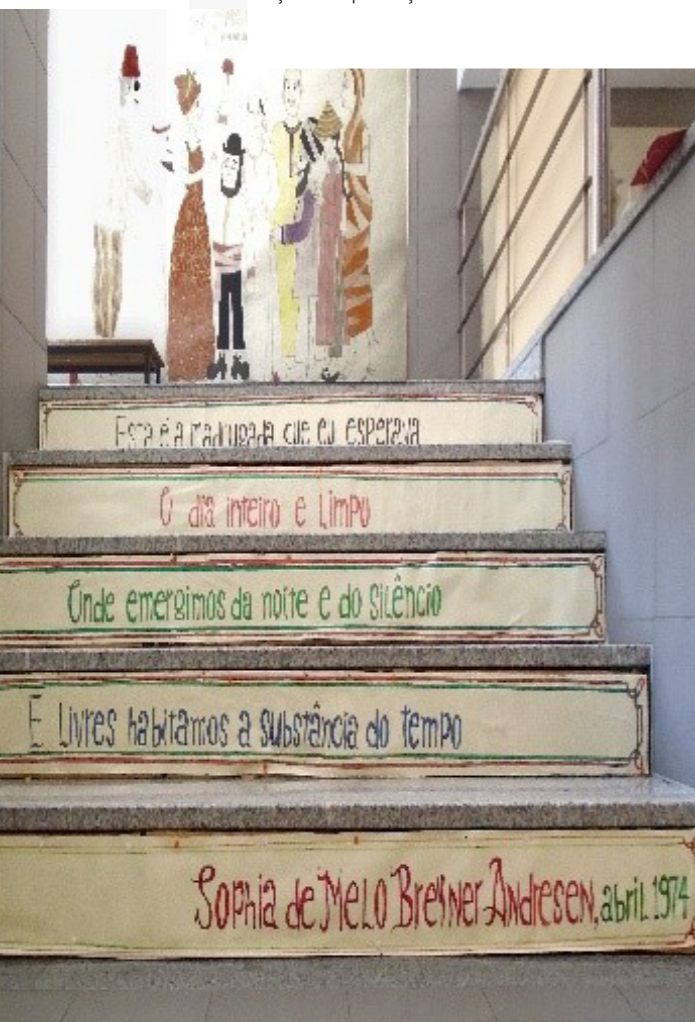 Esta é a madrugada que eu esperava
O dia inteiro e limpo
Onde emergimos da noite e do silêncio
E livres habitamos a substância do tempo
Sophia de Melo Breyner Andresen, abril 1974